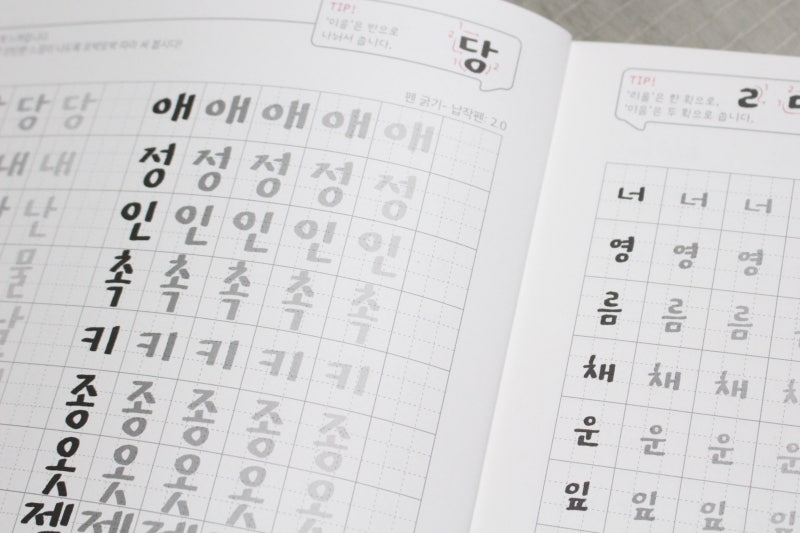 TIP!
'이응'은 반으로
나눠서 씁니다.
당
펜 굵기- 납작펜- 2.0
당 당 애 애 애 애 애
내 내 정 정 정 정 정
난 인 인 인 인 인
물 촉 촉 촉 촉 촉
키 키 키 키 키
종 종 종 종 종
옷 옷 옷 옷 옷
젤 젤 젤
TIP!
'리을'은 한 획으로,
'미음'은 두 획으로 씁니다.
ㄹ ㅁ
너 너 너
영 영 영
름 름 름
채 채 채
운 운 운
잎 잎 잎 잎